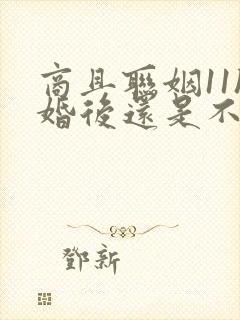 商且聯姻11
婚後還是不
鄧新